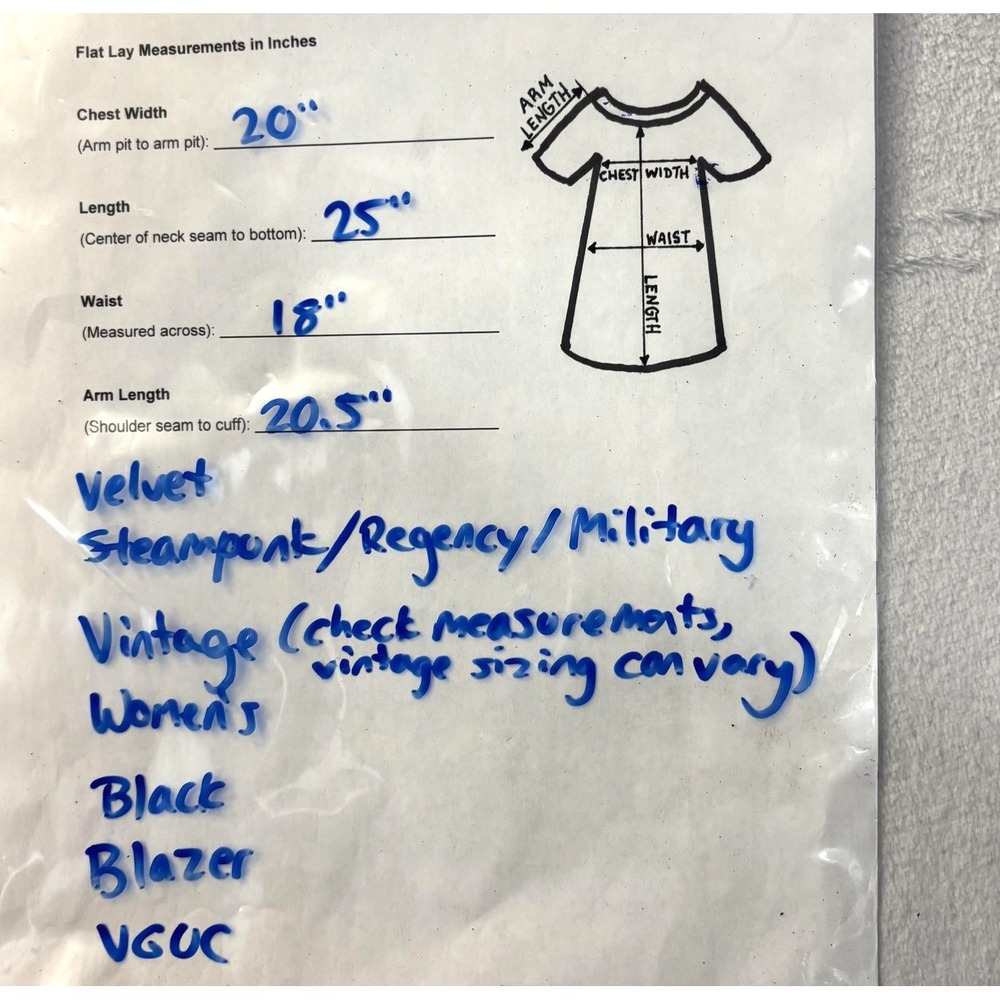 Flat Lay Measurements in Inches
Chest Width
(Arm pit to arm pit): 20"
Length
(Center of neck seam to bottom): 25"
Waist
(Measured across): 18"
Arm Length
(Shoulder seam to cuff): 20.5"
ARM
LENGTH
CHEST WIDTH
WAIST
LENGTH
Velvet
Steampunk/Regency/Military
Vintage (check measurements,
vintage sizing can vary)
Women's
Black
Blazer
VGUC